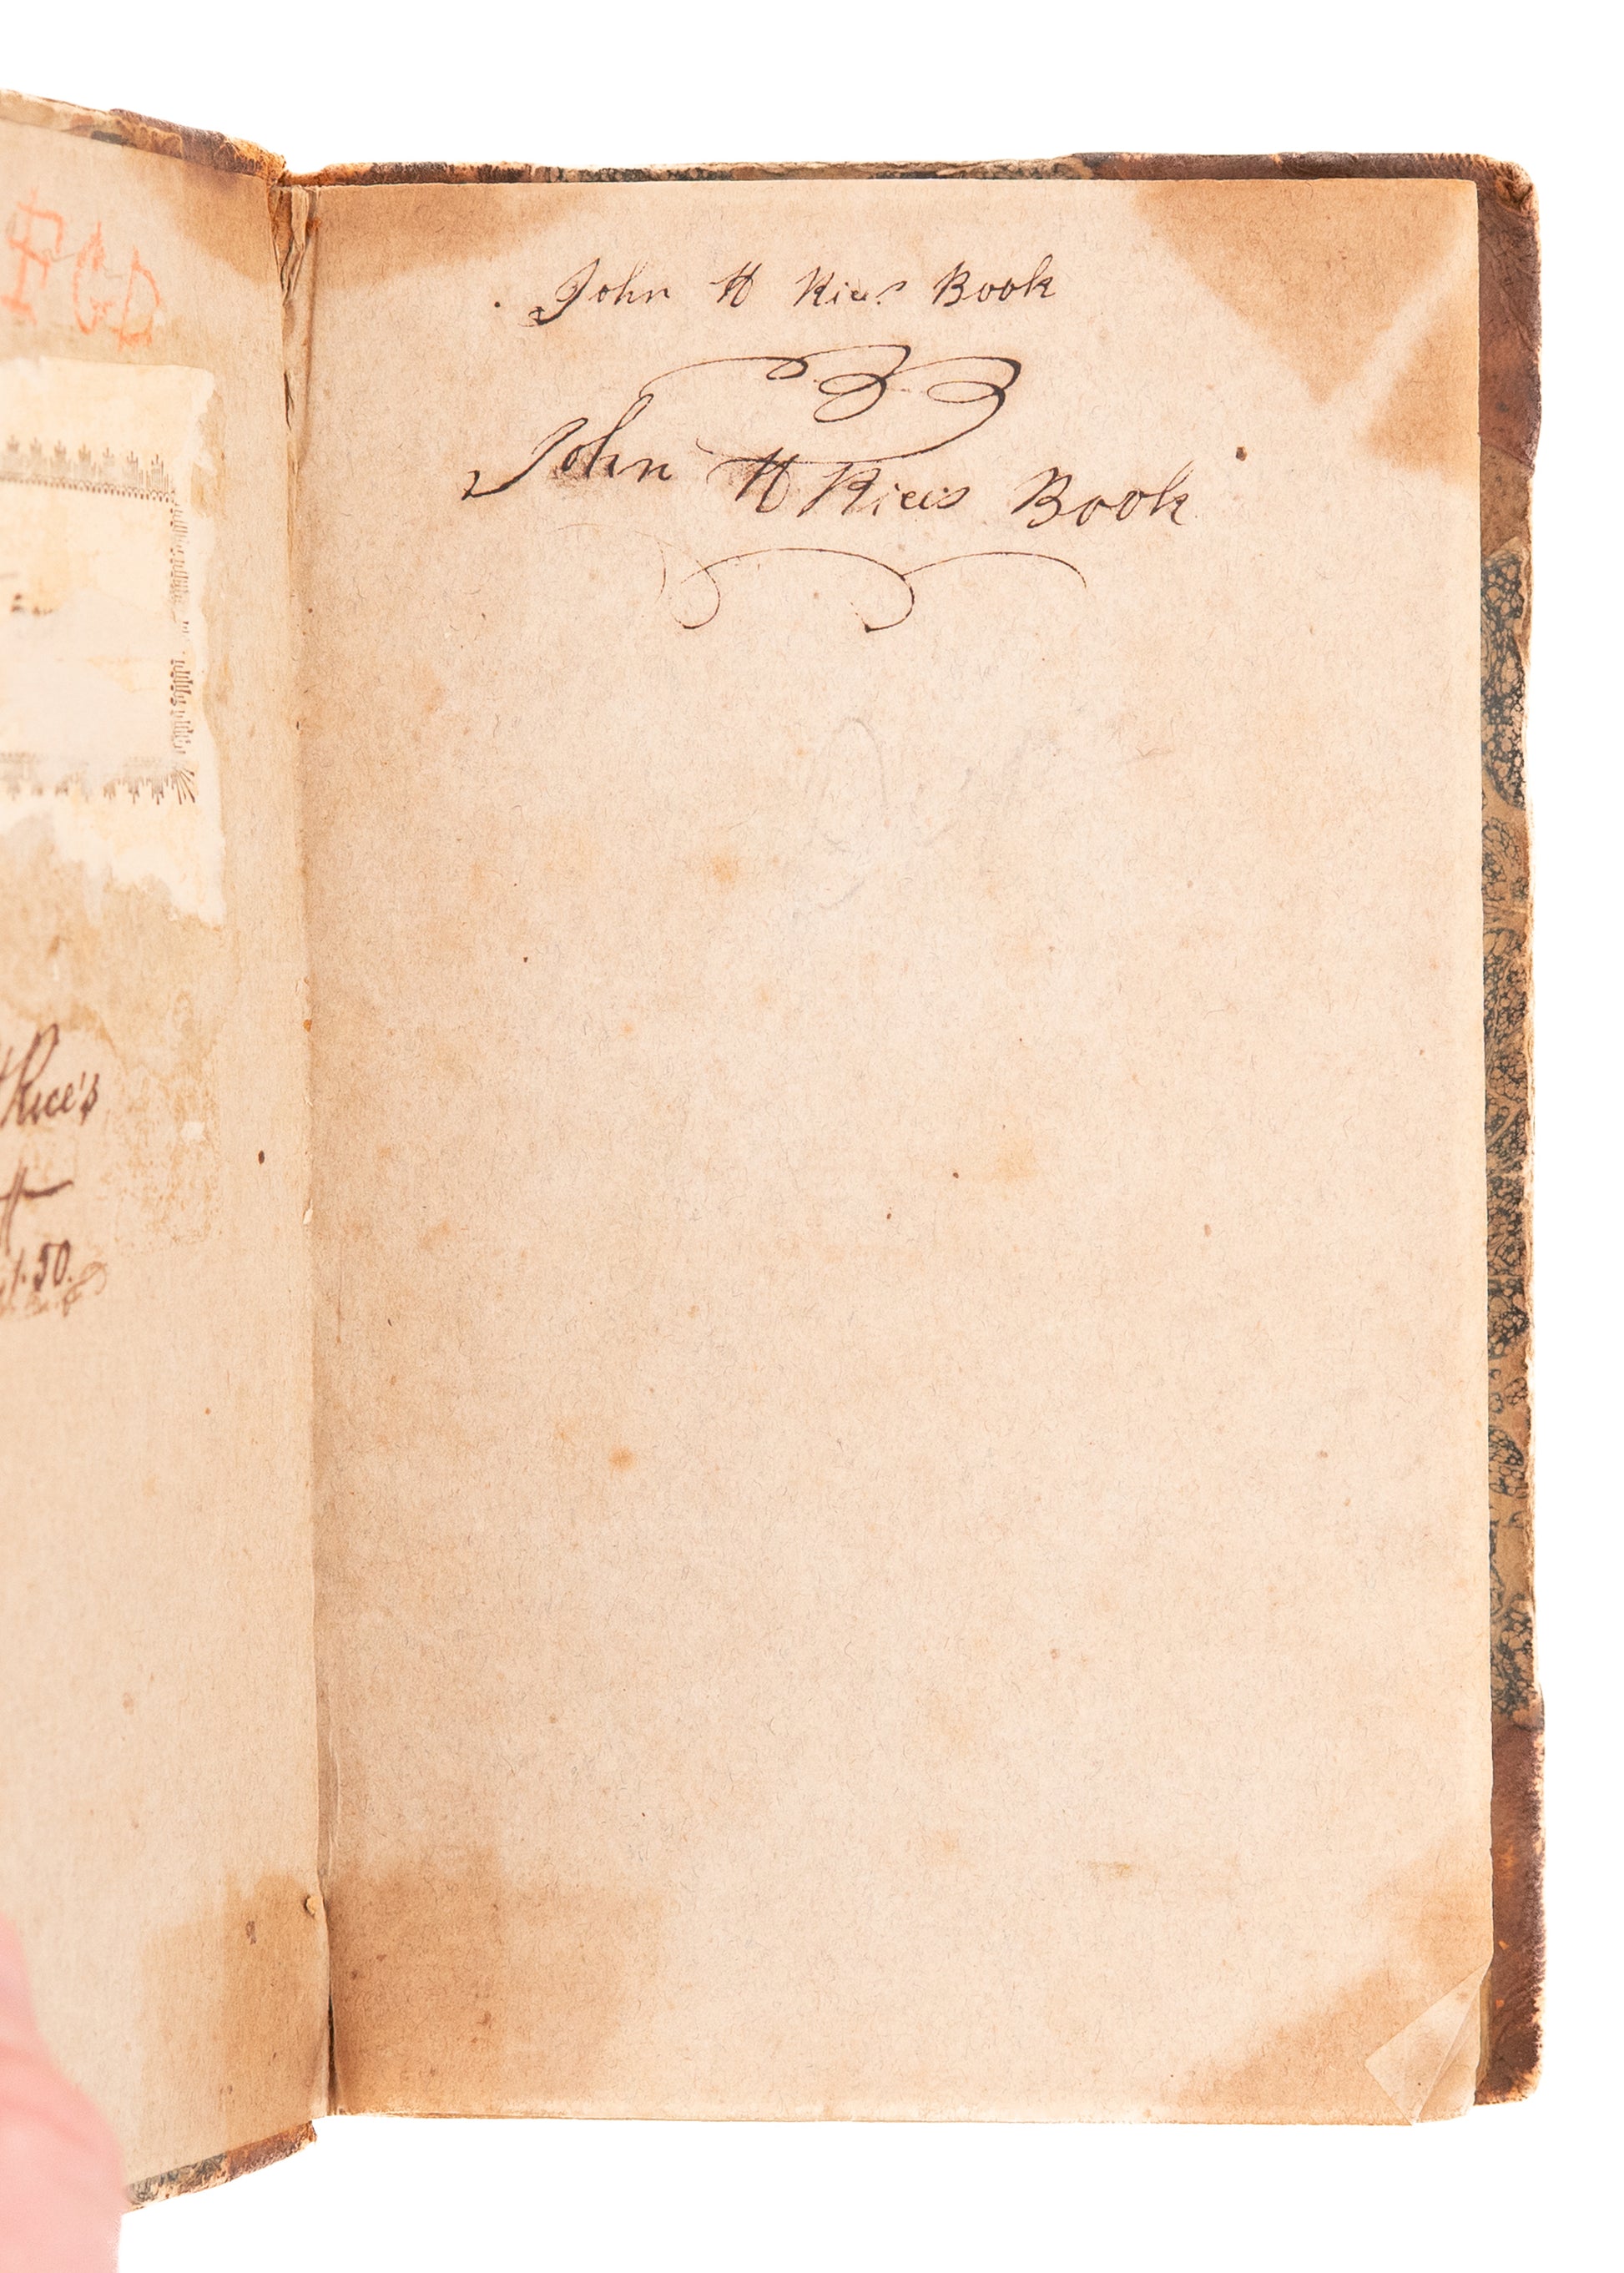 FGD
Rice's
1.50.
John H Rices Book
John H Rices Book